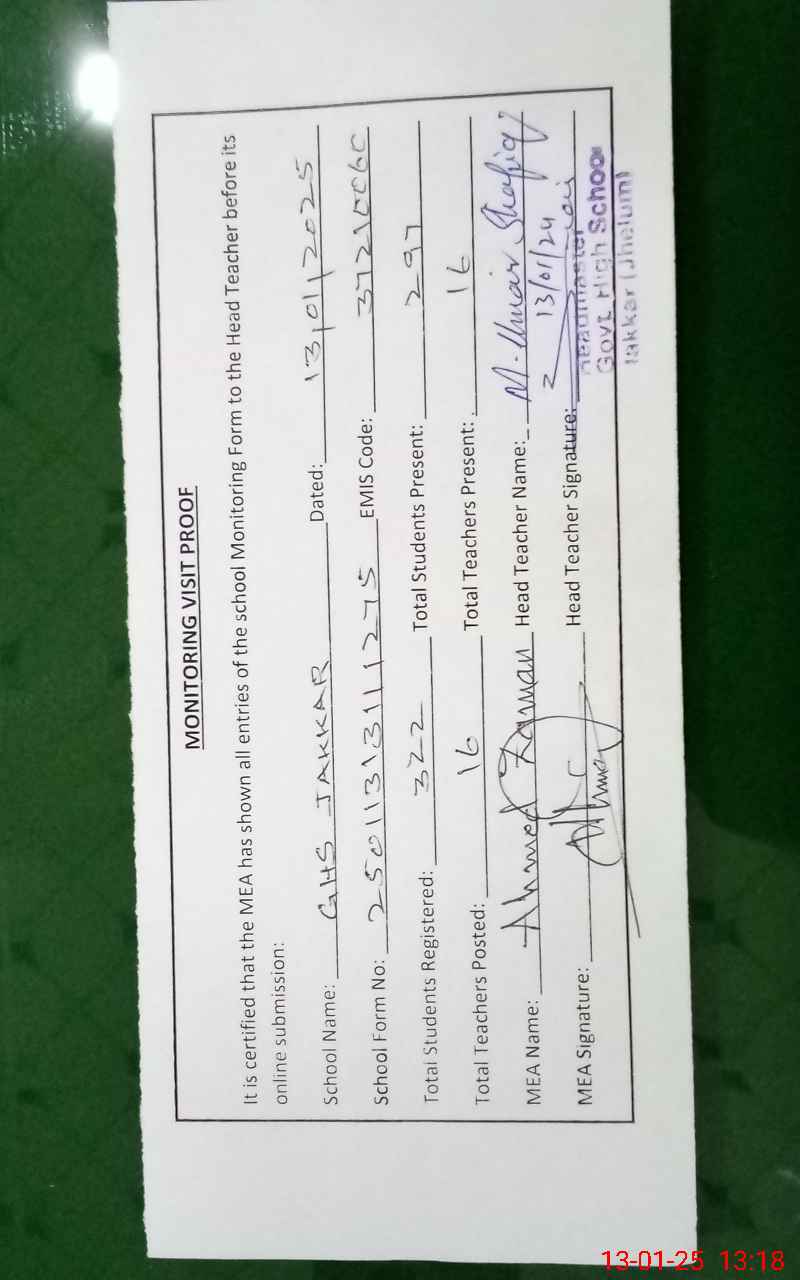 MONITORING VISIT PROOF
It is certified that the MEA has shown all entries of the school Monitoring Form to the Head Teacher before its
online submission:
School Name: GHS JAKKAR Dated: 13,01,2025
School Form No: 250113131111275 EMIS Code: 37210060
Total Students Registered: 322 Total Students Present: 297
Total Teachers Posted: 16 Total Teachers Present: 16
MEA Name: Ahmed Zaman Head Teacher Name: M. Umair Shafiq
13/01/24
MEA Signature: Head Teacher Signature:
Headmaster
Govt. High School
Jakkar (Jhelum)
13-01-25 13:18